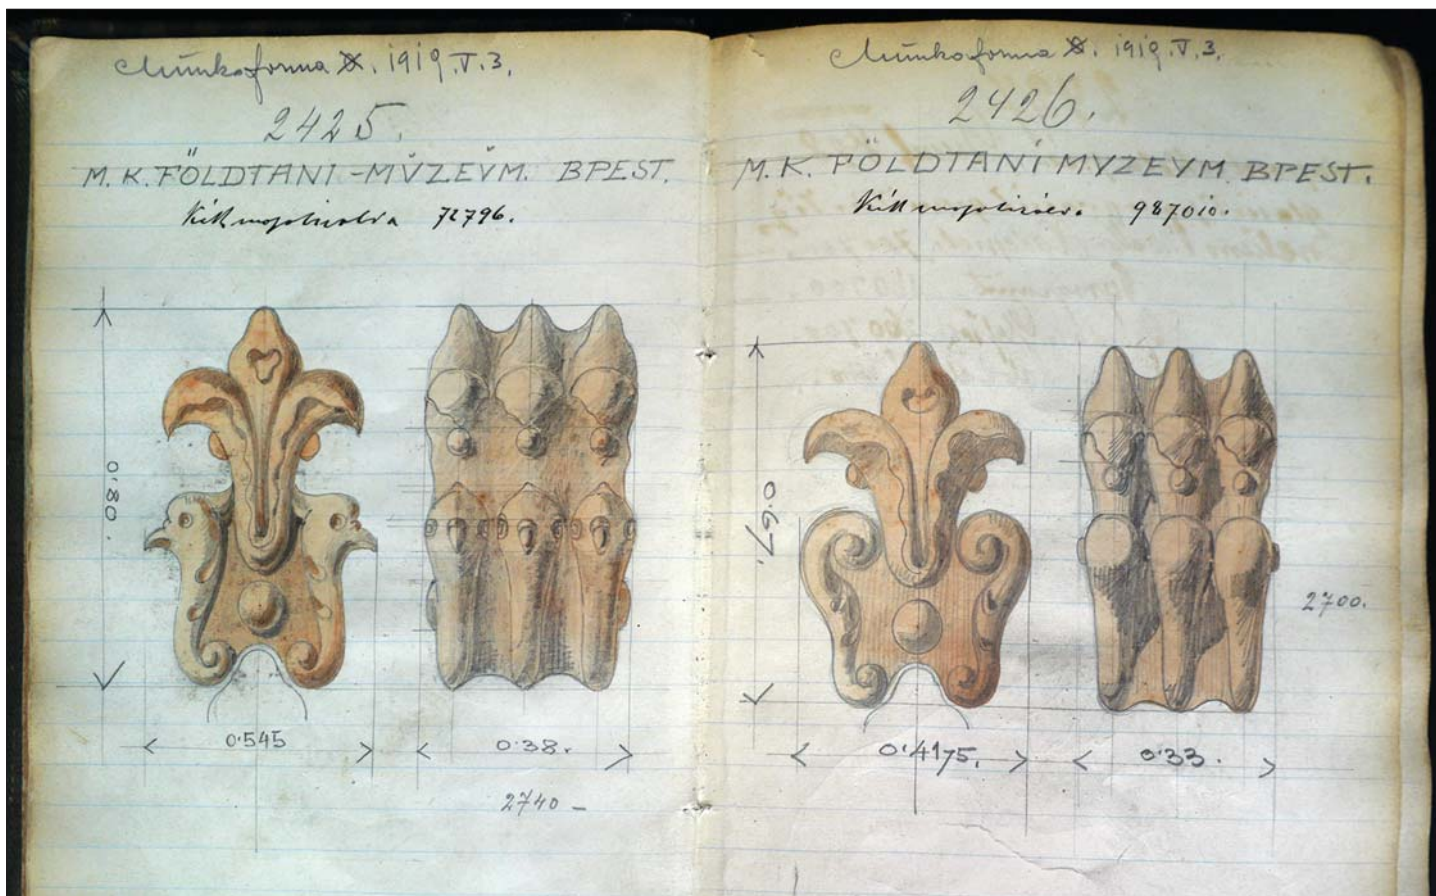 Munkaforma X. 1919.V.3.
2425.
M. K. FÖLDTANI-MŰZEŰM. BPEST.
Kék 72796.
0·80.
0·545
0·38.
2740 –
Munkaforma X. 1919.V.3.
2426.
M. K. FÖLDTANI MVZEVM. BPEST.
Kék 987010.
0·67.
2700.
0·4175.
0·33.